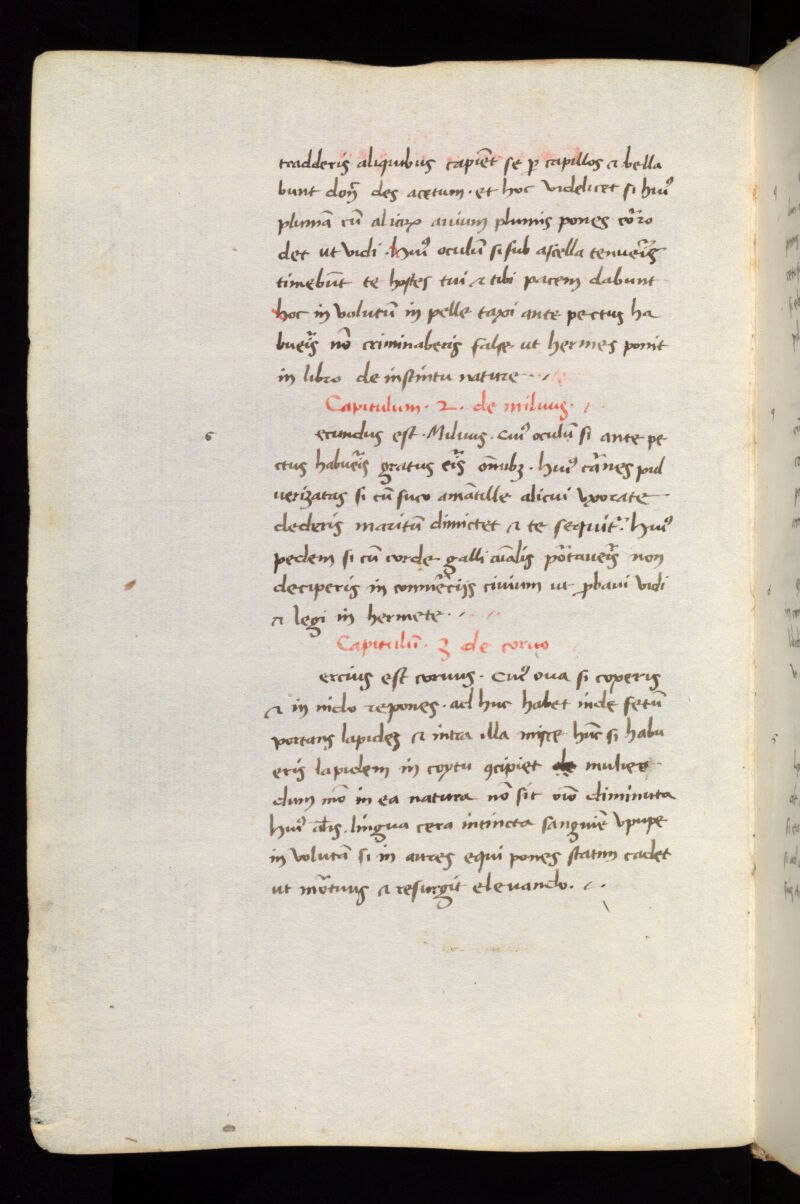 tradderis aliquibus capiēt se ꝑ capillos ⁊ bella
bunt donꝫ des acetum · et hoc videlicet si huiꝰ
plumā cū aliaꝝ auium plumis pones
det ut vidi · huiꝰ oculū si sub ascella tenueris
timebūt te hostes tui ⁊ tibi pacem dabunt
hoc in volutū in pelle taxi ante pectus ha
bueris nō criminaberis false ut hermes ponit
in libro de instintu nature
Capitulum · 2 · de miluus ·
6
ecundus est · Miluus · Cuiꝰ oculū si ante pe
ctus habueris gratus eris oīnibꝫ · huiꝰ carnes pul
uerizatas si cū suco alicui vxorate
dederis maritū dimictet ⁊ te sequitur · huiꝰ
pedem si cū corde galli portaueris non
deciperis in commercijs ciuium ut ꝓbaui vidi
⁊ legi in hermete ·
Capitulū · 3 de coruo
ercius est coruus · Cuiꝰ oua si coxeris
⁊ in nido repones · ad huc habet inde fetū
portans lapideꝫ ⁊ intra illa misce hūc si habu
eris lapidem in coytu ꝯcipiet mulier
dum mō in ea natura nō sit oīo diminuta
huiꝰ lingua cera intincta sanguīe vpupe
in volutā si in aures equi pones statim cadet
ut mortuus ⁊ resurgit eleuando ·